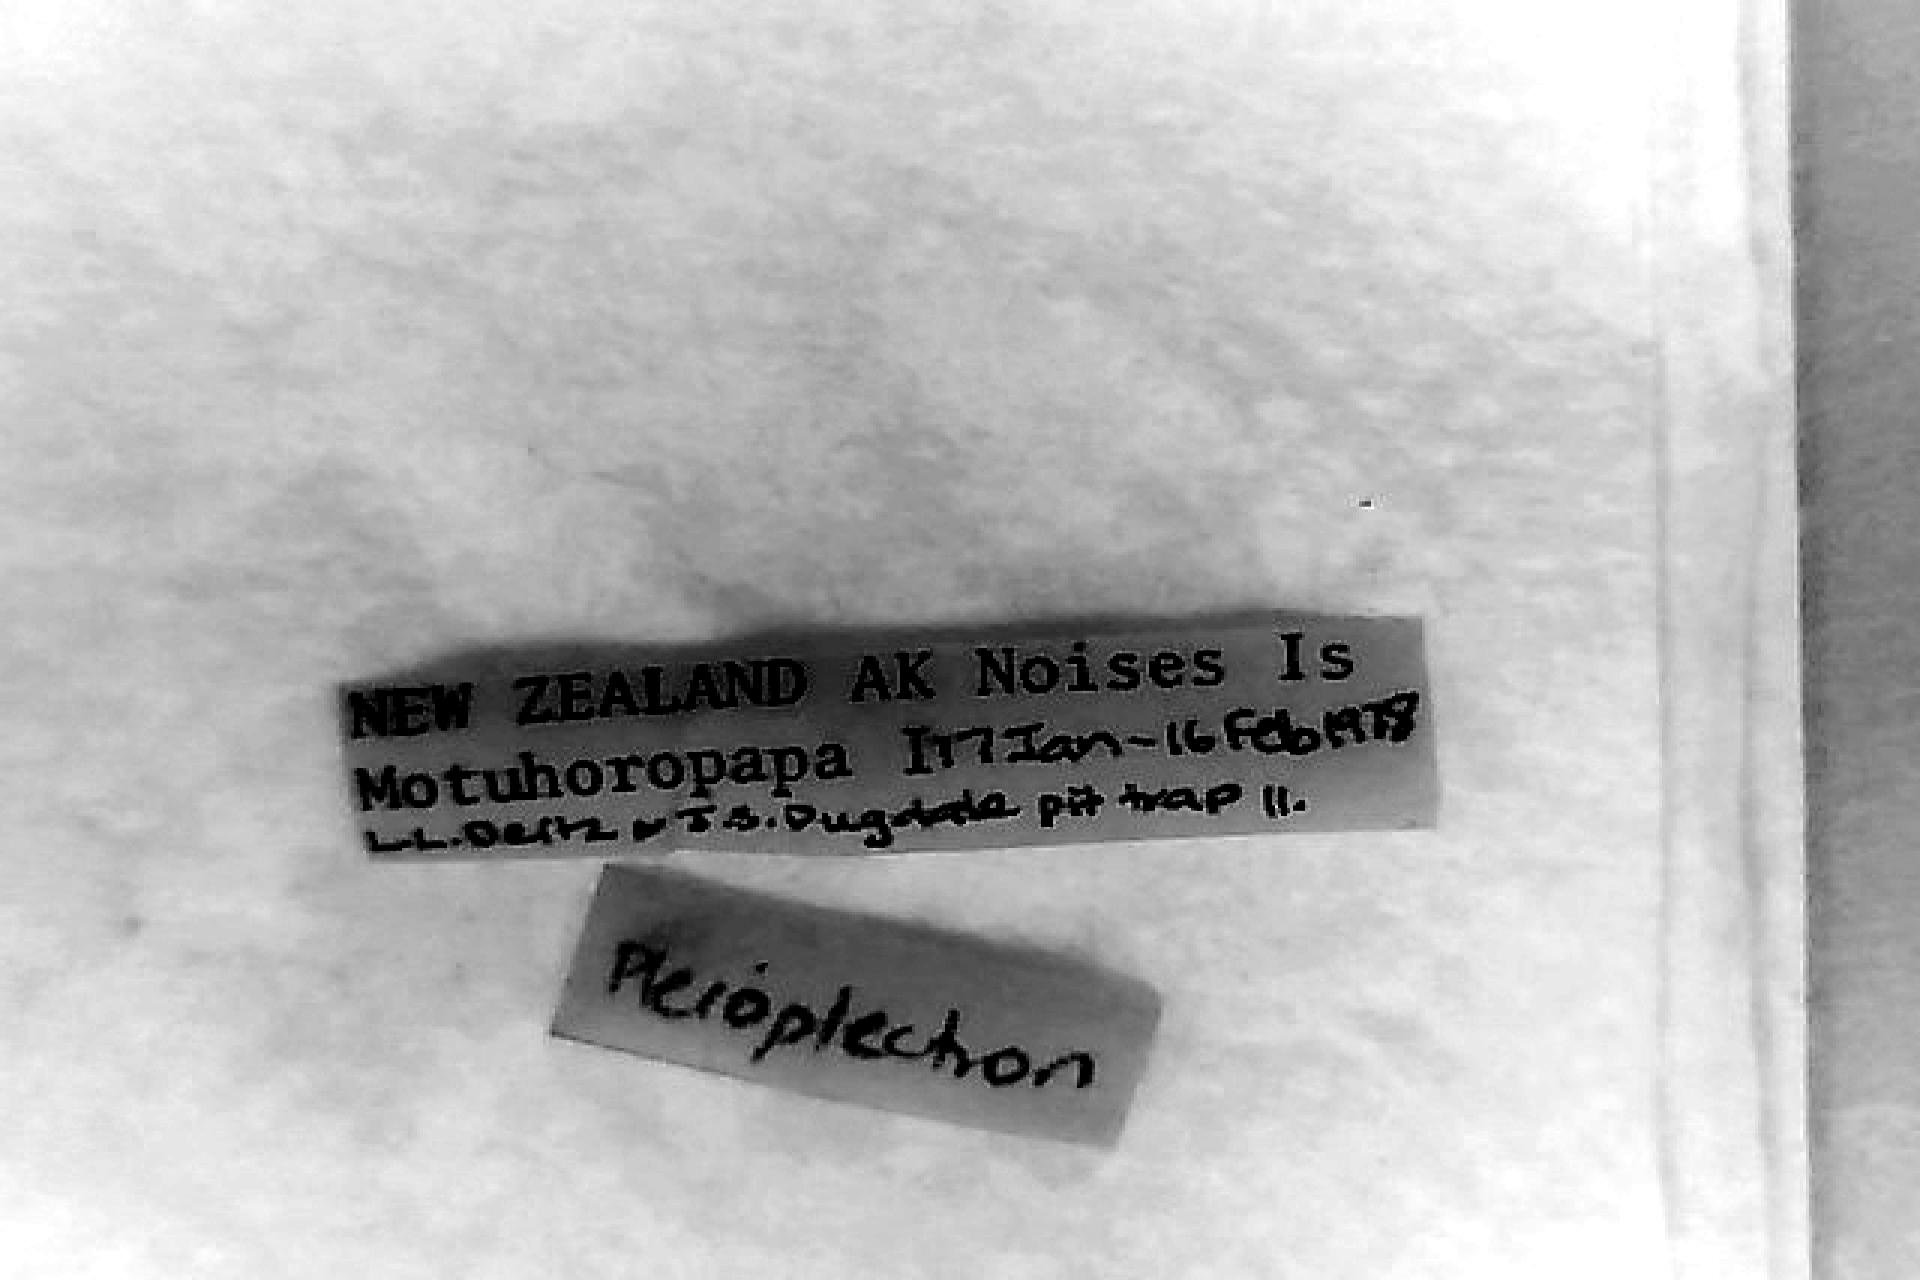 NEW ZEALAND AK Noises Is
Motuhoropapa I 17 Jan-16 Feb 1978
L.L. Deitz & J.S. Dugdale pit trap 11.
Pleioplectron